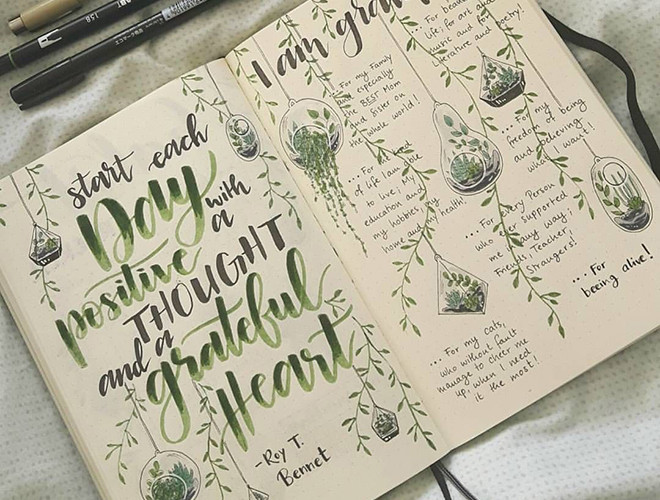 158
start each
Day
with
a
positive
THOUGHT
and a
grateful
Heart
-Roy T.
Bennet
I am
... For
life; for art and
music and for
Literature and poetry!
... For my Family
and especially
the BEST Mom
and Sister on
the whole world!
... For my
freedom of being
and believing
what I want!
of life I am able
to live; my
education and
my hobbies, my
home and my health!
... For every Person
who ever supported
me in any way:
Friends, Teacher,
Strangers!
... For
beeing alive!
... For my cats,
who without fault
manage to cheer me
up, when I need
it the most!